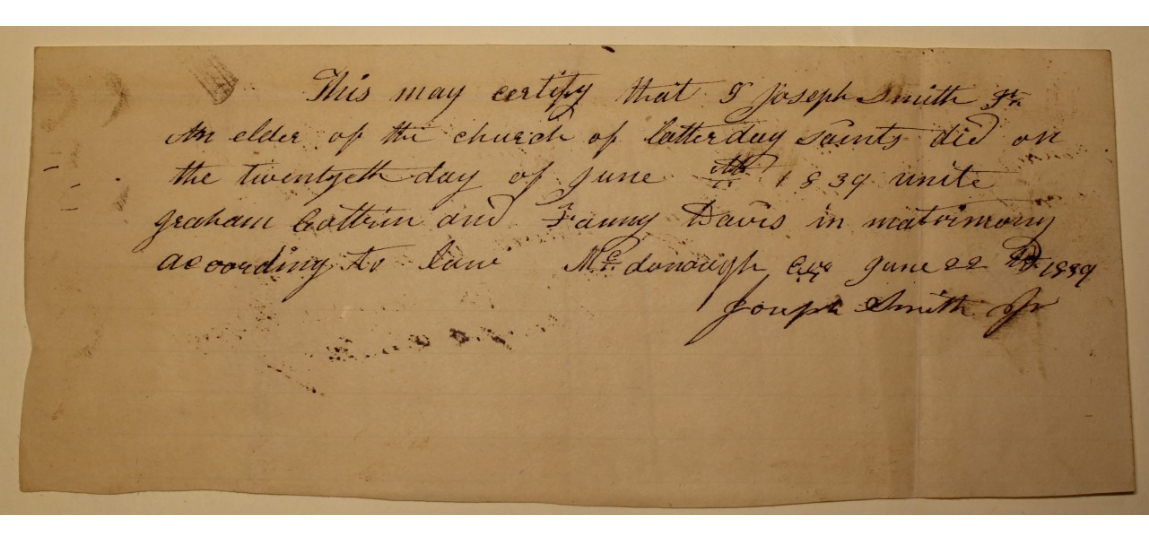 This may certify that I Joseph Smith Jr.
An elder of the church of latter day saints did on
the twentyeth day of June 1839 unite
graham Cottrin and Fanny Davis in matrimony
according to law Mc.donough Co June 22 1839
Joseph Smith Jr